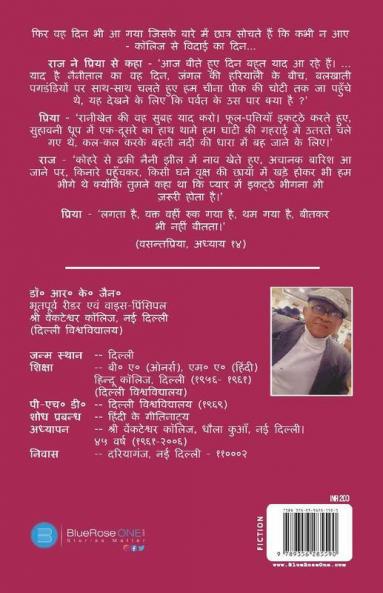 फिर वह दिन भी आ गया जिसके बारे में छात्र सोचते हैं कि कभी न आए
- कॉलिज से विदाई का दिन...
राज ने प्रिया से कहा - 'आज बीते हुए दिन बहुत याद आ रहे हैं। ...
याद है नैनीताल का वह दिन, जंगल की हरियाली के बीच, बलखाती
पगडंडियों पर साथ-साथ चलते हुए हम चीना पीक की चोटी तक जा पहुँचे
थे, यह देखने के लिए कि पर्वत के उस पार क्या है ?'
प्रिया - 'रानीखेत की वह सुबह याद करो। फूल-पत्तियाँ इकट्ठे करते हुए,
सुहावनी धूप में एक-दूसरे का हाथ थामे हम घाटी की गहराई में उतरते चले
गए थे, कल-कल करके बहती नदी की धारा में बह जाने के लिए।'
राज - 'कोहरे से ढकी नैनी झील में नाव खेते हुए, अचानक बारिश आ
जाने पर, किनारे पहुँचकर, किसी घने वृक्ष की छाया में खड़े होकर भी हम
भीगे थे क्योंकि तुमने कहा था कि प्यार में इकट्ठे भीगना भी
ज़रूरी होता है।'
प्रिया - 'लगता है, वक्त वहीं रुक गया है, थम गया है, बीतकर
भी नहीं बीतता।'
(वसन्तप्रिया, अध्याय १४)
डॉ० आर० के० जैन०
भूतपूर्व रीडर एवं वाइस-प्रिंसिपल
श्री वेंकटेश्वर कॉलिज, नई दिल्ली
(दिल्ली विश्वविद्यालय)
जन्म स्थान -- दिल्ली
शिक्षा -- बी० ए० (ओनर्स), एम० ए० (हिंदी)
हिन्दू कॉलिज, दिल्ली (१९५६- १९६१)
(दिल्ली विश्वविद्यालय)
पी-एच० डी० -- दिल्ली विश्वविद्यालय (१९६९)
शोध प्रबन्ध -- हिंदी के गीतिनाट्य
अध्यापन -- श्री वेंकटेश्वर कॉलिज, धौला कुआँ, नई दिल्ली।
४५ वर्ष (१९६१-२००६)
निवास -- दरियागंज, नई दिल्ली - ११०००२
BlueRose ONE
Stories Matter
FICTION
INR 200
9 789356 285590
www.BlueRoseONE.com